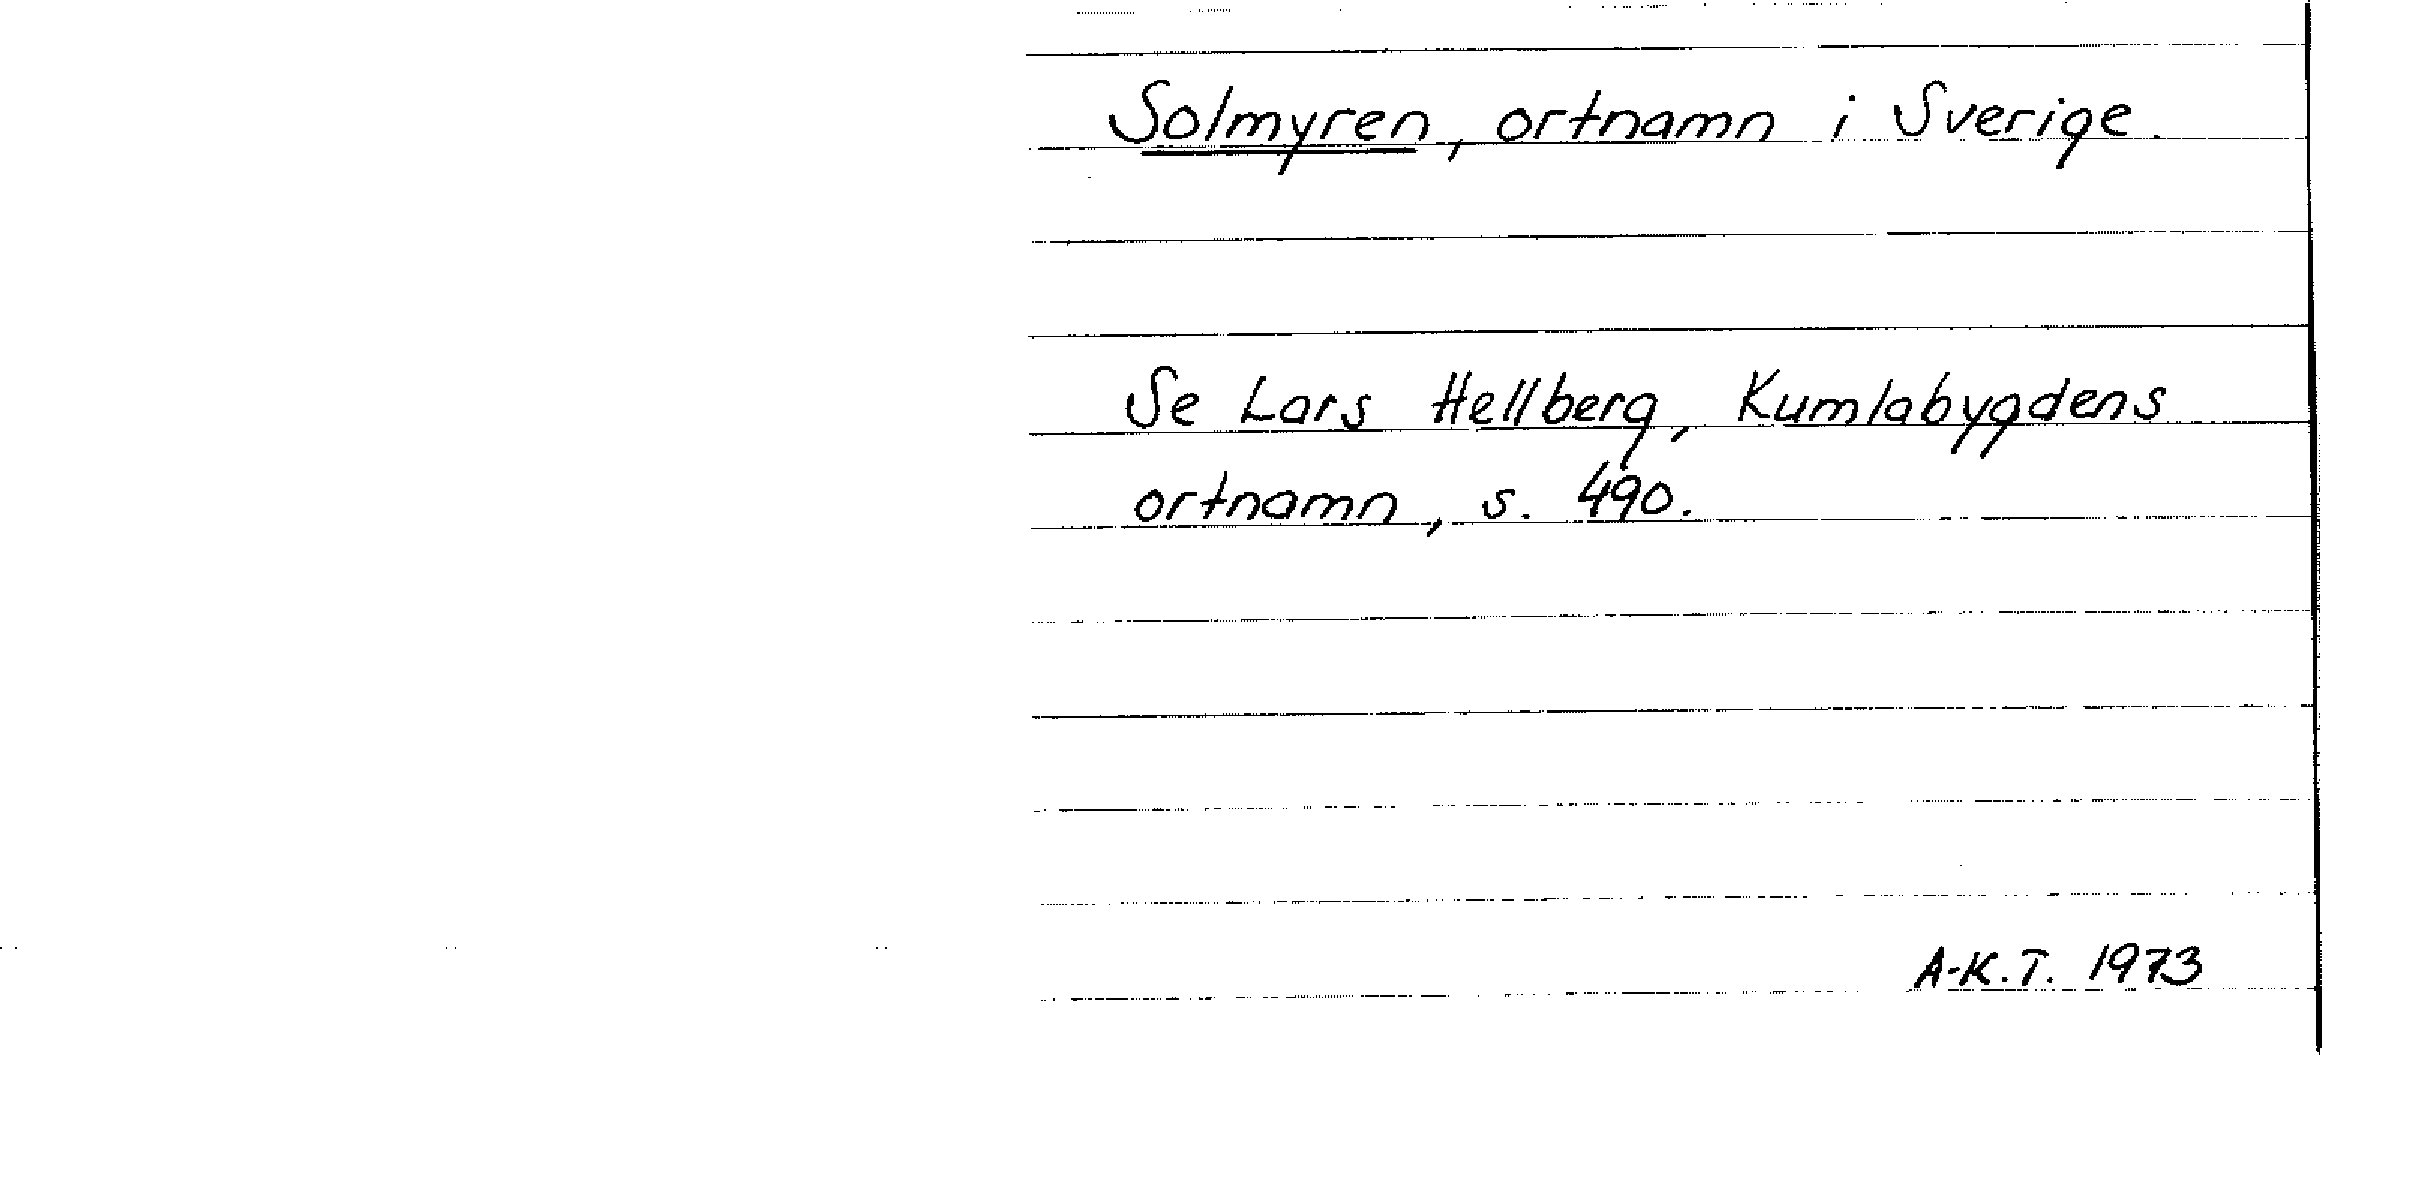 Solmyren, ortnamn i Sverige.
Se Lars Hellberg, Kumlabygdens
ortnamn, s. 490.
A-K.T. 1973